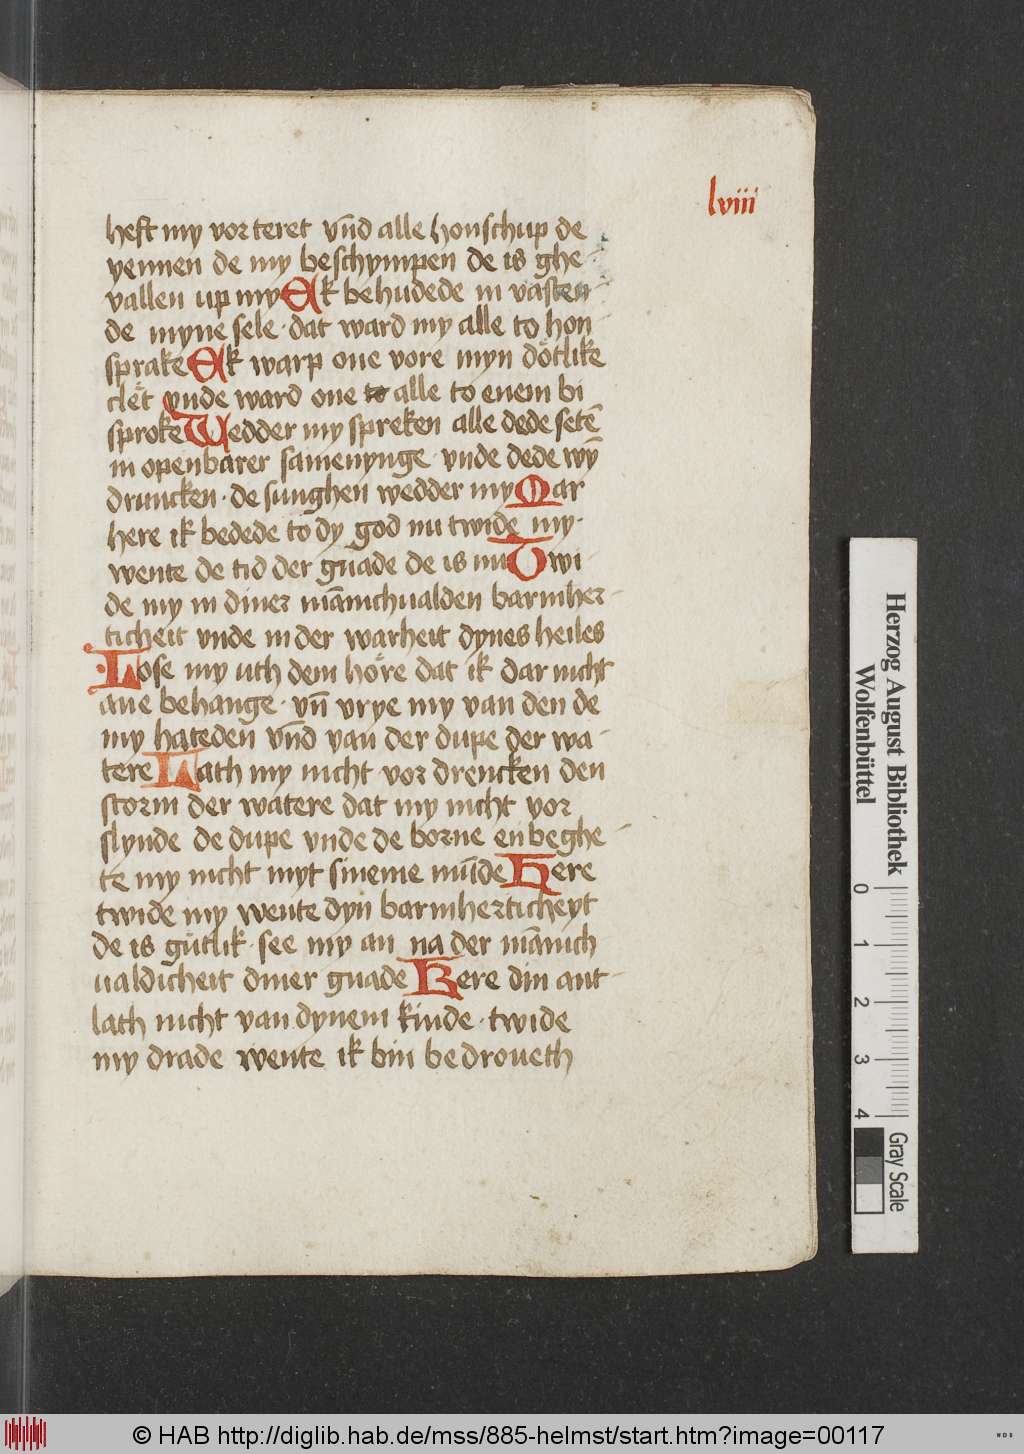 lviii
heft my vorteret vn̄d alle honschup de
yennen de my beschympen de is ghe
vallen up my Ek behudede in vasten
de myne sele · dat ward my alle to hon
sprake Ek warp one vore myn dötlike
clet vnde ward one to alle to enem bi
sproke Wedder my spreken alle dede setē
in openbarer samenynge vnde dede wȳ
druncken · de sunghen wedder my Mar
here ik bedede to dy god nu twide my ·
wente de tid der gnade de is nu Twi
de my in diner mānichualden barmher
ticheit vnde in der warheit dynes heiles
Lose my uth dem höre dat ik dar nicht
ane behange · vn̄ vrye my van den de
my hateden vn̄d van der dupe der wa
tere Lath my nicht vor drencken den
storm der watere dat my nicht vor
slynde de dupe vnde de borne en beghe
te my nicht myt sineme mūde Here
twide my wente dyn barmherticheyt
de is gütlik · see my an na der mānich
ualdicheit diner gnade Kere din ant
lath nicht van dynem kinde · twide
my drade wente ik bin bedroueth
Herzog August Bibliothek
Wolfenbüttel
0 1 2 3 4
Gray Scale
© HAB http://diglib.hab.de/mss/885-helmst/start.htm?image=00117